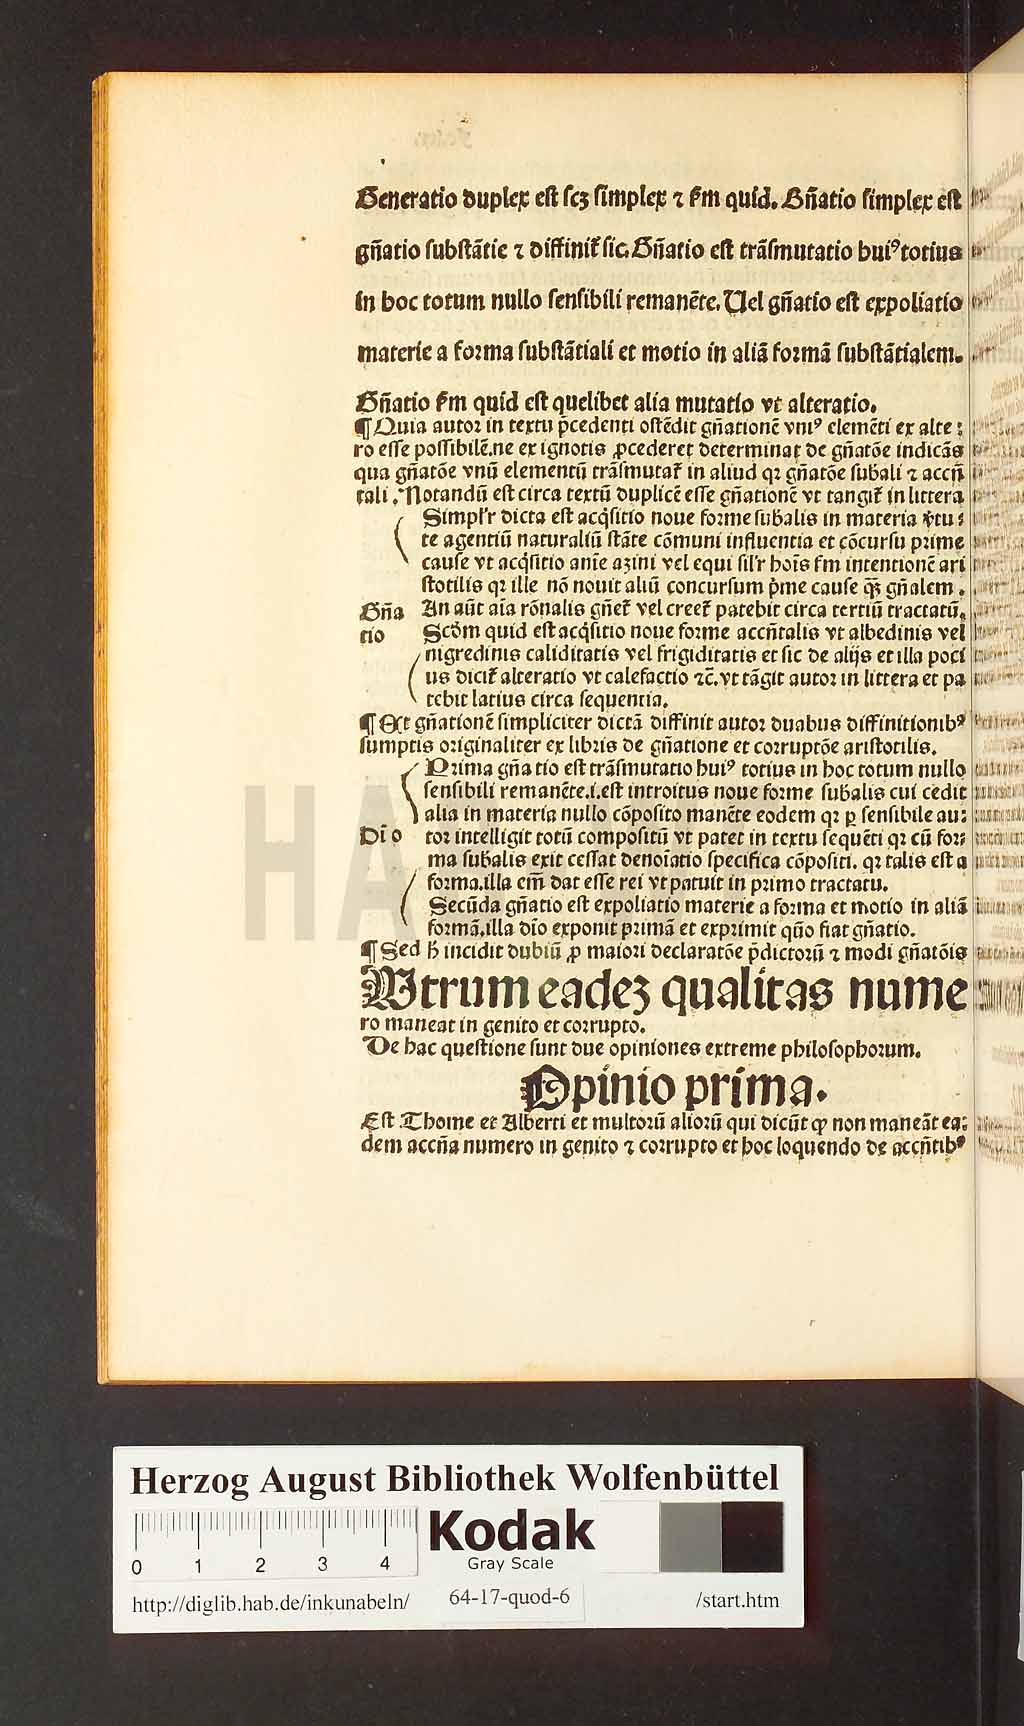 Generatio duplex est scꝫ simplex ⁊ ẜm quid. Gñatio simplex est
gñatio substãtie ⁊ diffinit᷑ sic. Gñatio est trãsmutatio huiꝰ totius
in hoc totum nullo sensibili remanẽte. Uel gñatio est expoliatio
materie a forma substãtiali et motio in aliã formã substãtialem.
Gñatio ẜm quid est quelibet alia mutatio vt alteratio.
¶ Quia autor in textu p̃cedenti ostẽdit gñationẽ vniꝰ elemẽti ex alte:
ro esse possibilẽ.ne ex ignotis ꝓcederet determinat de gñatõe indicãs
qua gñatõe vnũ elementũ trãsmutat᷑ in aliud qꝛ gñatõe sub̃ali ⁊ accñ
tali. Notandũ est circa textũ duplicẽ esse gñationẽ vt tangit᷑ in littera
Simpl'r dicta est acq̇sitio noue forme sub̃alis in materia v̾tu:
te agentiũ naturaliũ stãte cõmuni influentia et cõcursu prime
cause vt acq̇sitio anĩe azini vel equi sil'r hoĩs ẜm intentionẽ ari
stotilis qꝛ ille nõ nouit aliũ concursum p̾me cause qꝫ̃ gñalem.
Gña
tio
An aũt aĩa rõnalis gñet᷑ vel creet᷑ patebit circa tertiũ tractatũ.
Scðm quid est acq̇sitio noue forme accñtalis vt albedinis vel
nigredinis caliditatis vel frigiditatis et sic de alijs et illa poci
us dicit᷑ alteratio vt calefactio ⁊c̃.vt tãgit autor in littera et pa
tebit latius circa sequentia.
¶ Et gñationẽ simpliciter dictã diffinit autor duabus diffinitionibꝰ
sumptis originaliter ex libris de gñatione et corruptõe aristotilis.
Prima gñatio est trãsmutatio huiꝰ totius in hoc totum nullo
sensibili remanẽte.i.est introitus noue forme sub̃alis cui cedit
alia in materia nullo cõposito manẽte eodem qꝛ ꝑ sensibile au:
Dĩo
tor intelligit totũ compositũ vt patet in textu sequẽti qꝛ cũ for:
ma sub̃alis exit cessat denoĩatio specifica cõpositi. qꝛ talis est a
forma.illa em̃ dat esse rei vt patuit in primo tractatu.
Secũda gñatio est expoliatio materie a forma et motio in aliã
formã.illa dĩo exponit primã et exprimit qũo fiat gñatio.
¶ Sed h̾ incidit dubiũ ꝓ maiori declaratõe p̃dictorũ ⁊ modi gñatõis
Utrum eadeꝫ qualitas nume
ro maneat in genito et corrupto.
De hac questione sunt due opiniones extreme philosophorum.
Opinio prima.
Est Thome et Alberti et multorũ aliorũ qui dicũt ꝙ non maneãt ea:
dem accña numero in genito ⁊ corrupto et hoc loquendo de accñtibꝰ
HAB WF
Herzog August Bibliothek Wolfenbüttel
0 1 2 3 4
Kodak
Gray Scale
http://diglib.hab.de/inkunabeln/ 64-17-quod-6 /start.htm